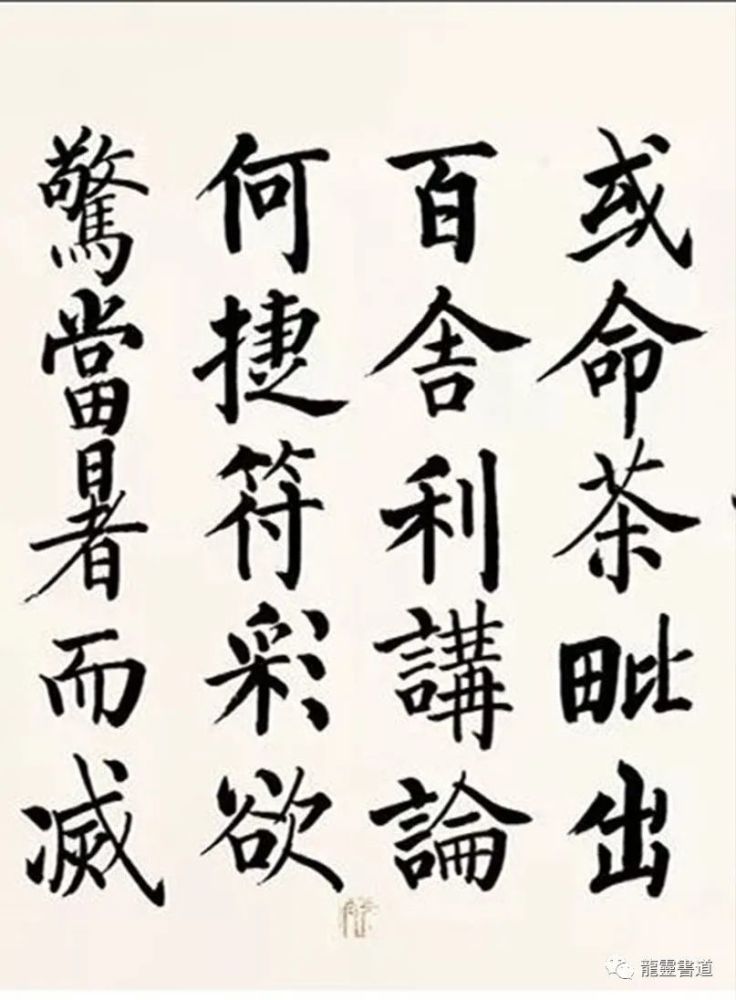 或命茶毗出
百舍利講論
何捷符彩欲
驚當暑者而滅
龍靈書道